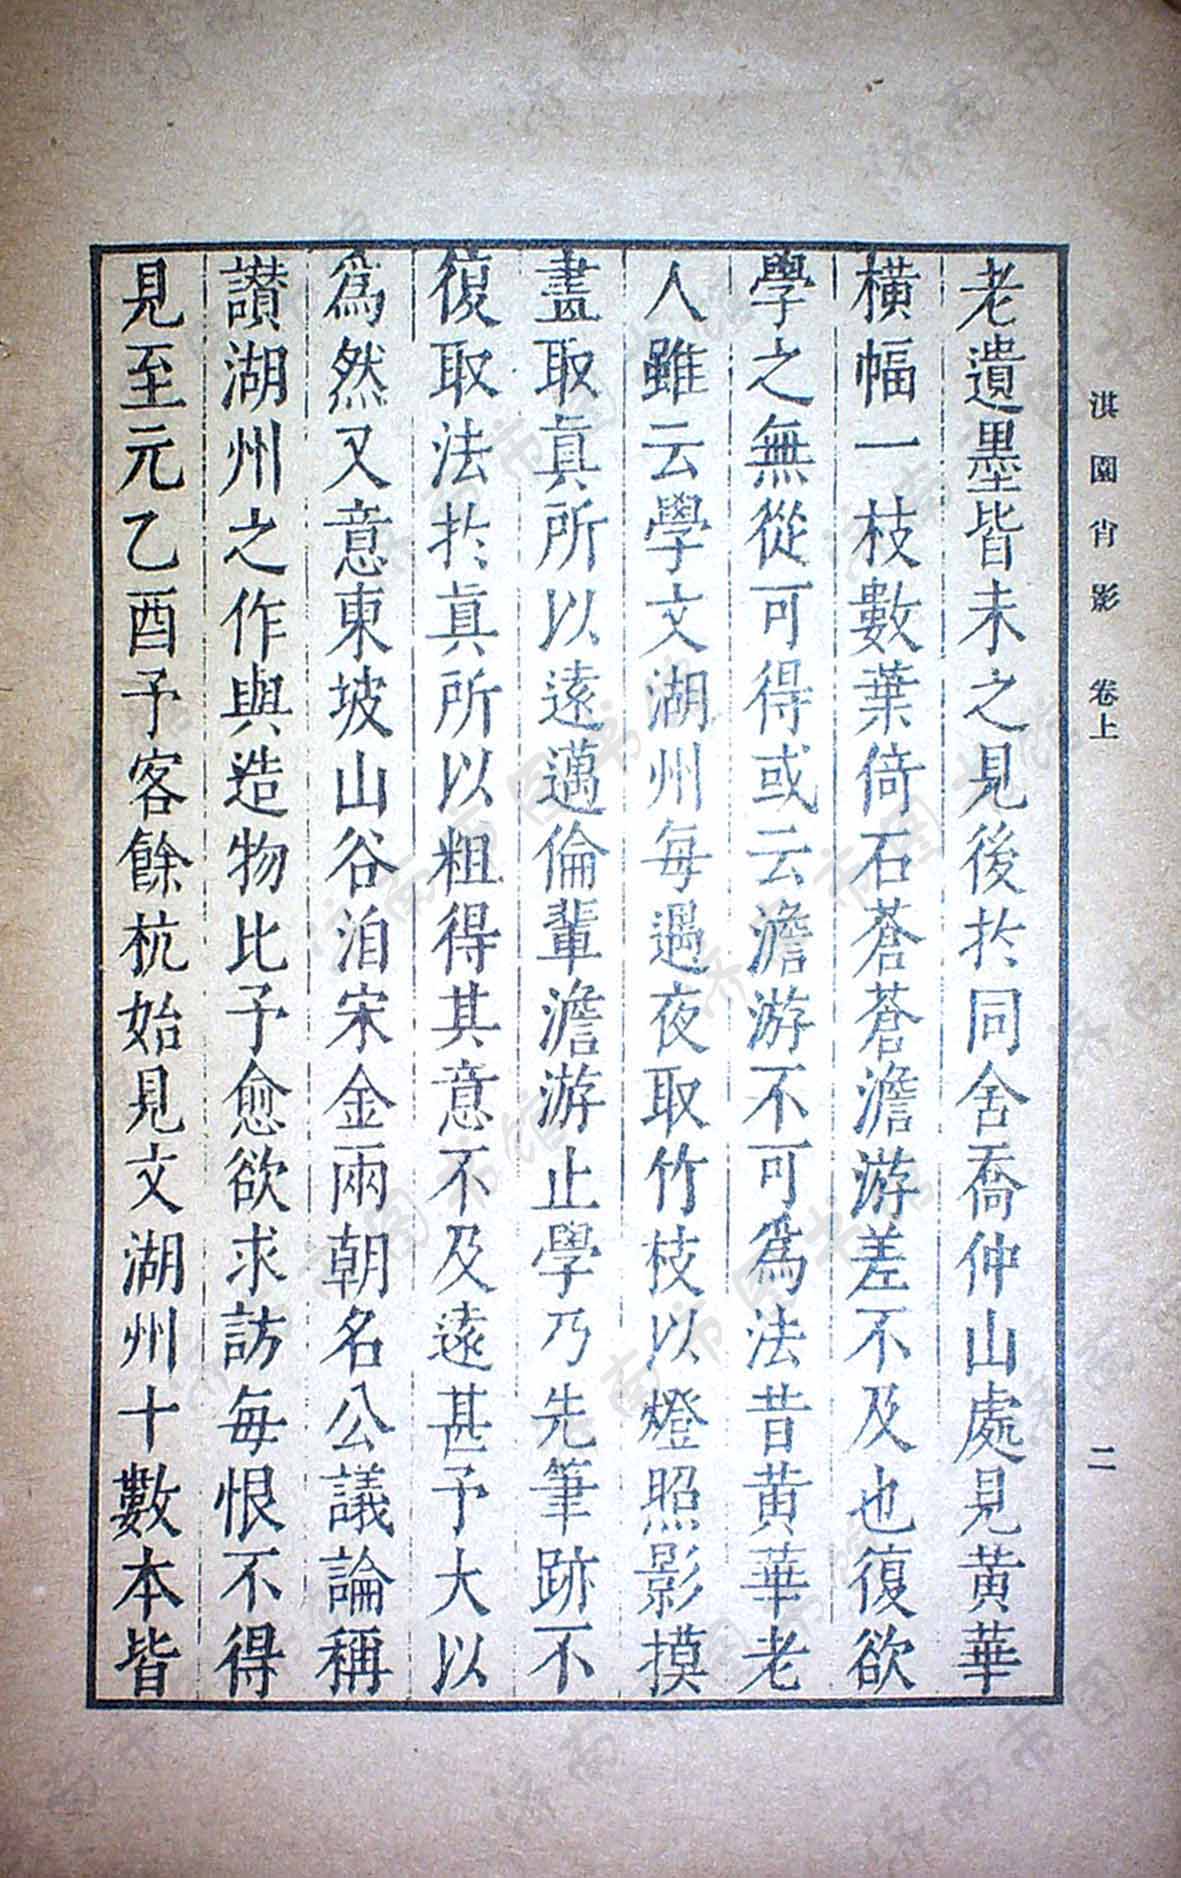 淇園肖影 卷上 二
老遺墨皆未之見後於同舍喬仲山處見黃華
橫幅一枝數葉倚石蒼蒼澹游差不及也復欲
學之無從可得或云澹游不可爲法昔黃華老
人雖云學文湖州每遇夜取竹枝以燈照影摸
畫取眞所以遠邁倫輩澹游止學乃先筆跡不
復取法於眞所以粗得其意不及遠甚予大以
爲然又意東坡山谷洎宋金兩朝名公議論稱
讃湖州之作與造物比予愈欲求訪每恨不得
見至元乙酉予客餘杭始見文湖州十數本皆